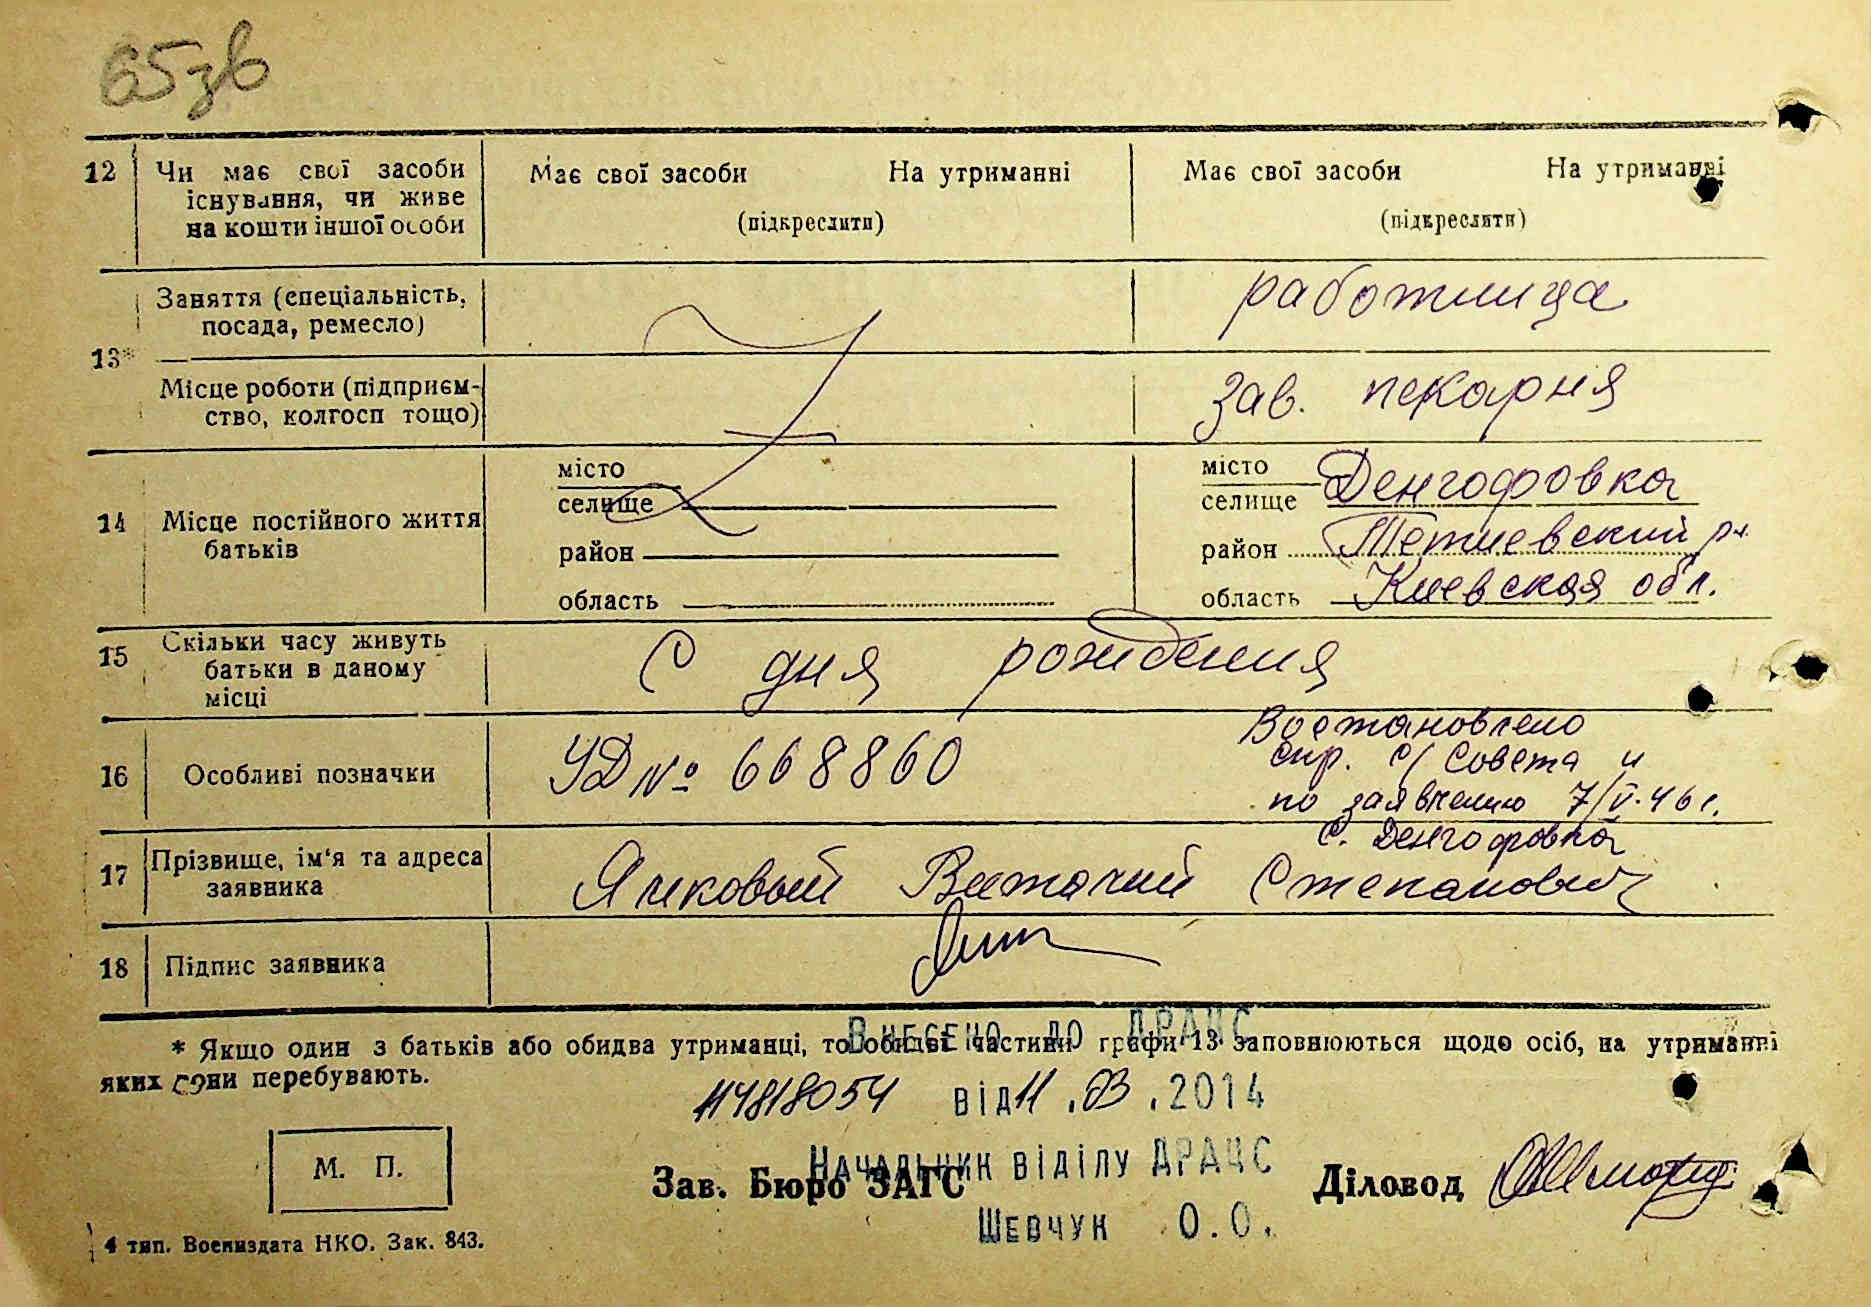 65зв
12 Чи має свої засоби існування, чи живе на кошти іншої особи
Має свої засоби На утриманні
(підкреслити)
Має свої засоби На утриманні
(підкреслити)
13* Заняття (спеціальність, посада, ремесло)
работница
Місце роботи (підприємство, колгосп тощо)
Зав. пекарня
14 Місце постійного життя батьків
місто
селище
район
область
місто
селище Денгофовка
район Тетиевский р-н
область Киевская обл.
15 Скільки часу живуть батьки в даному місці
С дня рождения
16 Особливі позначки
УД № 668860
Востановлено
спр. с/Совета и
по заявлению 7/V.46 г.
17 Прізвище, ім'я та адреса заявника
с. Денгофовка
Виталий Степанович
18 Підпис заявника
* Якщо один з батьків або обидва утриманці, то обидві частини графи 13 заповнюються щодо осіб, на утриманні
яких вони перебувають.
Внесено до ДРАЦС
від 11.03.2014
Начальник відділу ДРАЦС
Шевчук О.О.
М. П.
Зав. Бюро ЗАГС
Діловод
4 тип. Воениздата НКО. Зак. 843.